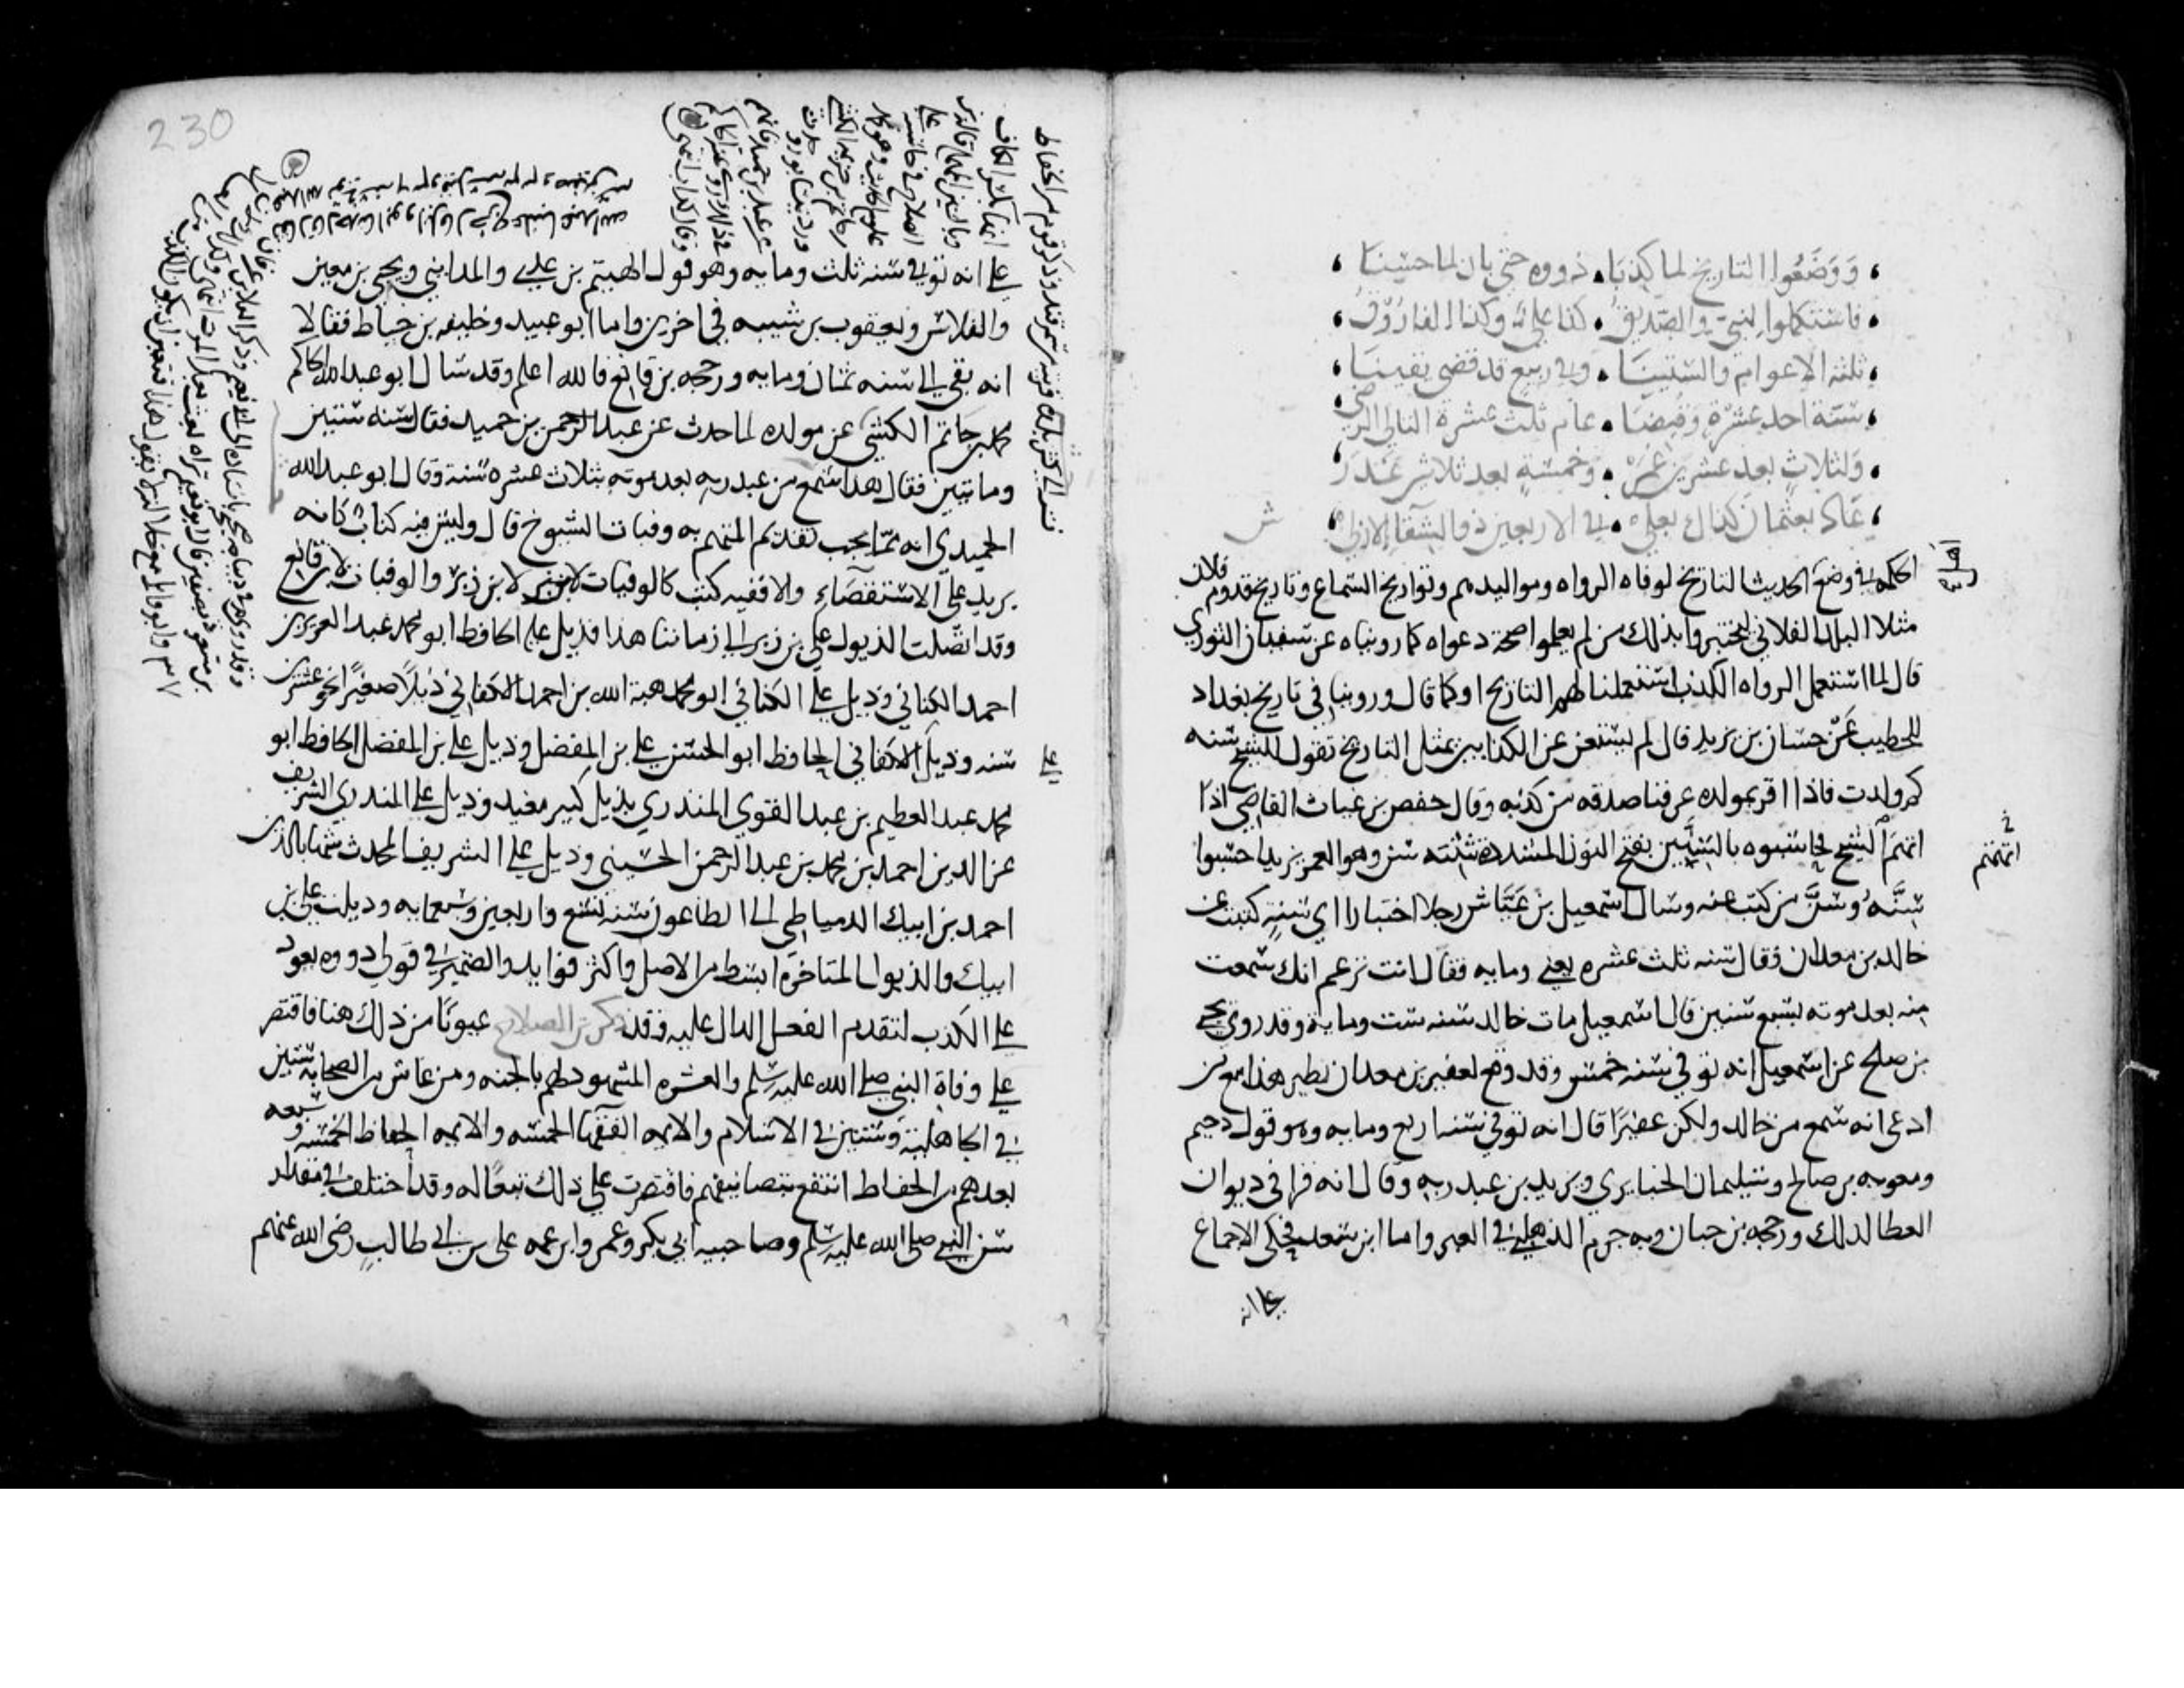 ووضعوا التاريخ لما كذبا ، ذووه حتى بان لما حسبا
فاستكملوا النبي والصديق ، كذا علي وكذا الفاروق
ثلثة الاعوام والستينا ، وفي ربيع قد قضى يقينا
سنة احد عشرة وقبضا ، عام ثلث عشرة التالي الرضى
ولثلاث بعد عشرين عمر ، وخمسة بعد ثلاثين غدر
عاد بعثمان كذاك بعلي ، في الاربعين ذو الشقاء الازلي
ش
الحكمة في وضع الحديث التاريخ لوفاه الرواه ومواليدهم وتواريخ السماع وتاريخ قدوم فلان
مثلا البلد الفلاني ليختبروا بذلك من لم يعلموا صحة دعواه كما روبناه عن سفيان الثوري
قال لما استعمل الرواه الكذب استعملنا لهم التاريخ او كما قال وروينا في تاريخ بغداد
للخطيب عن حسان بن يزيد قال لم يستعن عن الكذابين بمثل التاريخ تقول للشيخ سنه
كم ولدت فاذا اقر بمولده عرفنا صدقه من كذبه وقال حفص بن غياث القاضي اذا
اتهم الشيخ فحاسبوه بالسنين بفتح النون المشددة تثنيته سن وهو العمر يريد احسبوا
سنه وسن من كتب عنه وسال اسمعيل بن عياش رجلا اختبارا اي سنة كتبت عن
خالد بن معدان فقال سنه ثلث عشره يعني ومايه فقال انت تزعم انك سمعت
منه بعد موته بسبع سنين قال اسمعيل مات خالد سنه ست وماية وقد روى يحيى
بن صلح عن اسمعيل انه توفي سنه خمس وقد وقع لعفير بن معدان نظير هذا مع من
ادعى انه سمع من خالد ولكن عفيرا قال انه توفي سنه اربع ومايه وهو قول دحيم
ومعويه بن صالح وسليمان الخبايري ويزيد بن عبد ربه وقال انه قرا في ديوان
العطا لذلك ورجحه بن حبان وبه جزم الذهبي في العبر واما ابن سعد فحكى الاجماع
على انه
اتهمتم
230
على انه توفي سنه ثلث ومايه وهو قول الهيثم بن عدي والمدايني ويحيى بن معين
والفلاس ويعقوب بن شيبه في اخرين واما ابو عبيد وخليفه بن خياط فقالا
انه بقي الى سنه ثمان ومايه ورجحه بن قانع فالله اعلم وقد سال ابو عبد الله الحاكم
محمد بن حاتم الكشي عن مولده لما حدث عن عبد الرحمن بن حميد فقال سنه ستين
ومايتين فقال هذا سمع من عبد ربه بعد موته بثلاث عشره سنة وقال ابو عبد الله
الحميدي انه مما يجب تقديم المتهم به وفيات الشيوخ قال وليس فيه كتاب كانه
يريد على الاستقصاء والا ففيه كتب كالوفيات لابن زبر والوفيات لابن قانع
وقد اتصلت الذيول على بن زبر الى زماننا هذا فذيل على الحافظ ابو محمد عبد العزيز بن
احمد الكتاني وذيل على الكتاني ابو محمد هبة الله بن احمد الاكفاني ذيلا صغيرا نحو عشرين
سنه وذيل على الاكفاني الحافظ ابو الحسن علي بن المفضل وذيل على بن المفضل الحافظ ابو
محمد عبد العظيم بن عبد القوي المنذري بذيل كبير مفيد وذيل على المنذري الشريف
عز الدين احمد بن محمد بن عبد الرحمن الحسيني وذيل على الشريف المحدث شهاب الدين
احمد بن ايبك الدمياطي الى الطاعون سنه تسع واربعين وسبعمايه وذيلت على بن
ايبك والذيول المتاخرة ابسط من الاصل واكثر فوايد والضمير في قولي ذووه يعود
على الكذب لتقدم الفعل الدال عليه وقد ذكر بن الصلاح عيونا من ذلك هنا فاقتصر
على وفاة النبي صلى الله عليه وسلم والعشره المشهود لهم بالجنه ومن عاش من الصحابه ستين
في الجاهلية وستين في الاسلام والايمه الفقها الخمسه والايمه الحفاظ الخمسه وسبعه
بعدهم من الحفاظ انتفع بتصانيفهم فاقتصرت على ذلك تبعا له وقد اختلف في مقدار
سن النبي صلى الله عليه وسلم وصاحبيه ابي بكر وعمر وابن عمه علي بن ابي طالب رضى الله عنهم